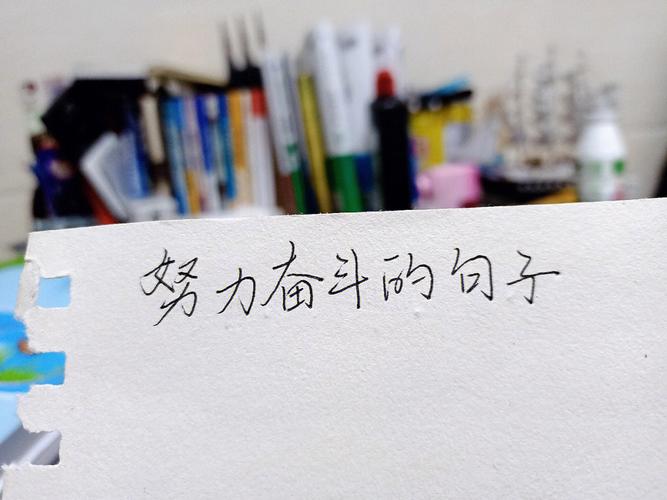 努力奋斗的句子